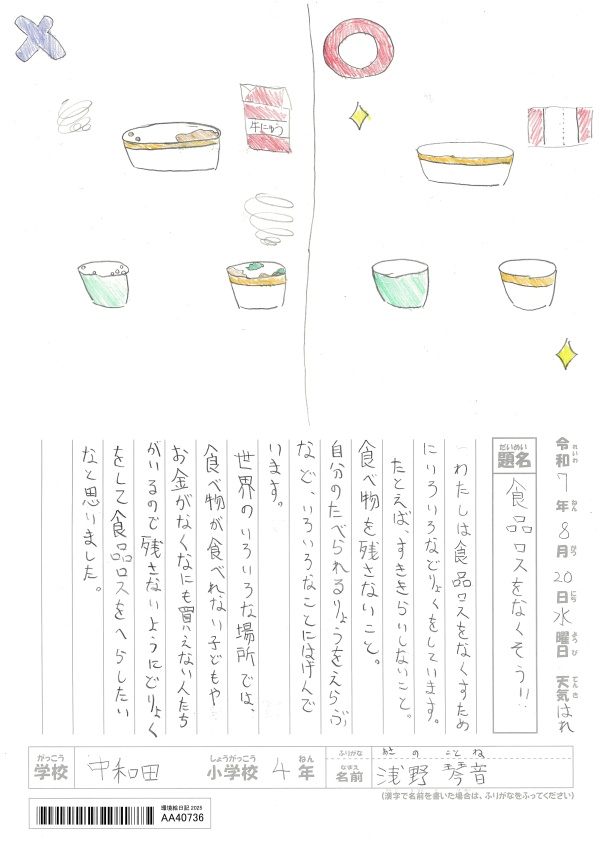 牛にゅう
令和れいわ7年ねん8月がつ20日にち水曜日ようび 天気てんきはれ
題名だいめい 食品ロスをなくそう!!
わたしは食品ロスをなくすため
にいろいろなどりょくをしていきます。
たとえば、すききらいしないこと。
食べ物を残さないこと。
自分のたべられるりょうをえらぶ
など、いろいろなことにはげんで
います。
世界のいろいろな場所では、
食べ物が食べれない子どもや
お金がなくなにも買えない人たち
がいるので残さないようにどりょく
をして食品ロスをへらしたい
なと思りました。
学校がっこう 中和田 小学校しょうがっこう 4年ねん
ふりがな あさ の こと ね
名前なまえ 浅野 琴音
(漢字で名前を書いた場合は、ふりがなをふってください)
環境絵日記 2025
AA40736